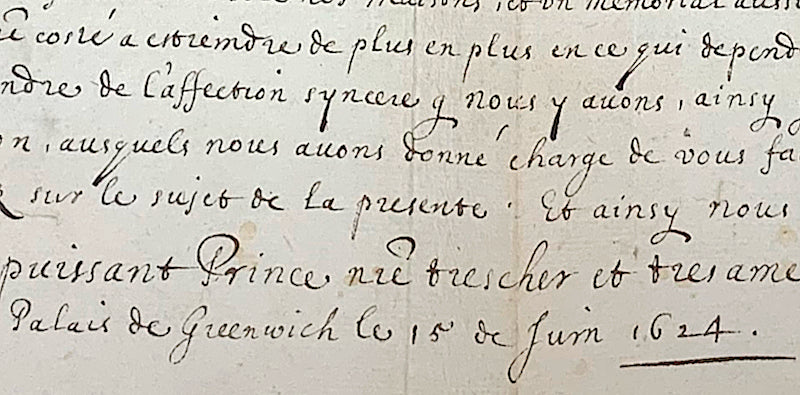 nos maisons, et un memorial aussi
costé a estreindre de plus en plus en ce qui depend
ndre de l'affection syncere q nous y avons, ainsy
on, ausquels nous auons donné charge de vous fa
sur le sujet de la presente. Et ainsy nous
puissant Prince nrē trescher et tresame
Palais de Greenwich le 15 de Juin 1624.